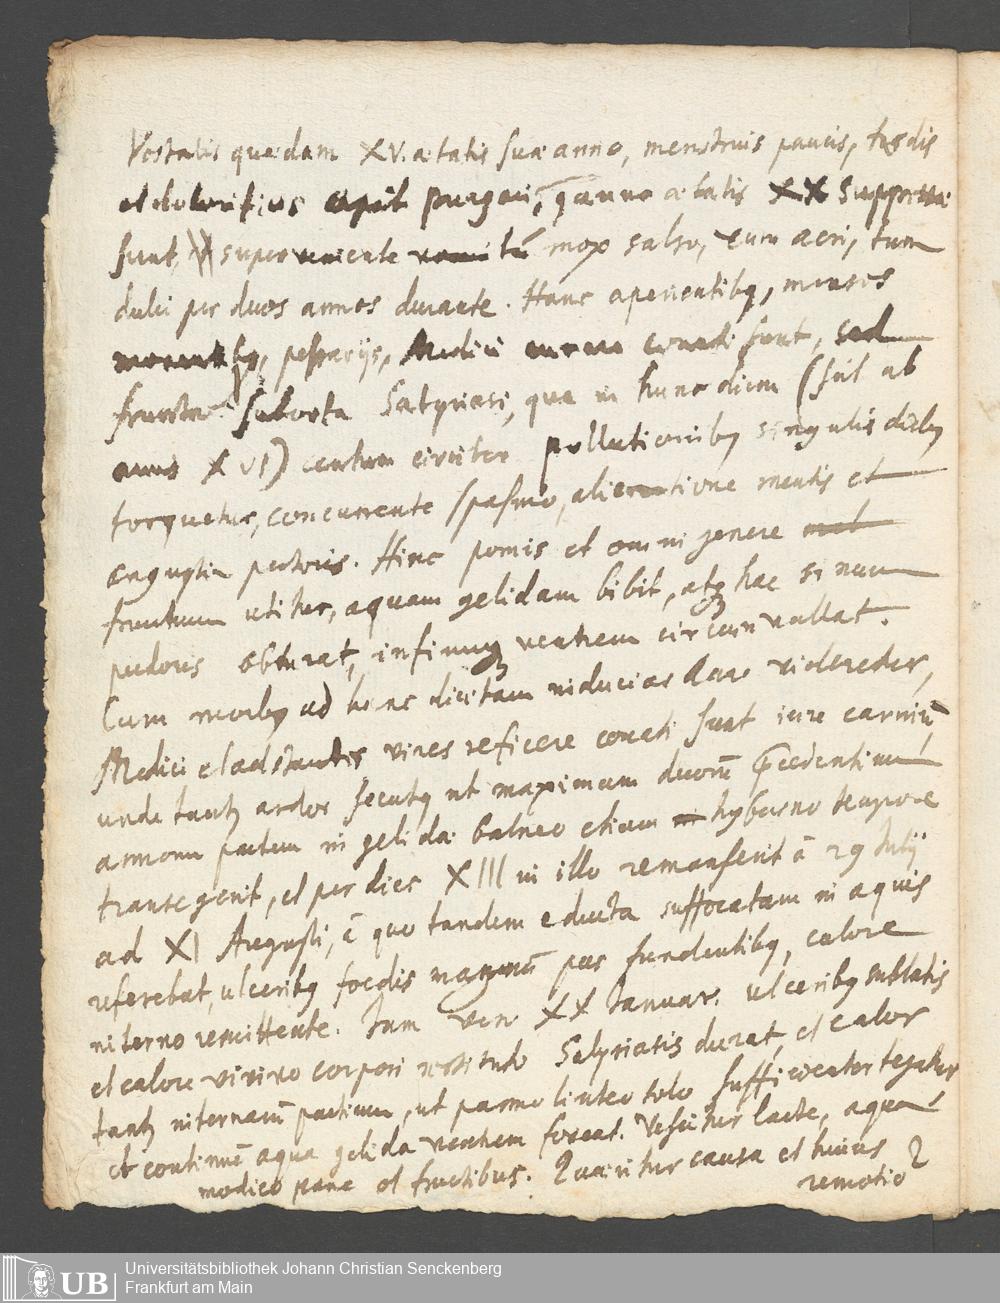 Vestalis quædam XV. ætatis suæ anno, menstruis paucis, tardis
et dolorificis cœpit purgari, quæ anno ætatis XX suppressa
sunt, superveniente mox salso, tum acri, tum
dulci per duos annos durante. Hanc aperientibꝯ, menses
moventibꝯ, pessarijs, Medici conati sunt, sed
frustra: suborta Satyriasi, qua in hunc diem (scil. ab
anno XVI) centum circiter pollutionibꝯ singulis diebꝯ
torquetur, concurrente spasmo, alienatione mentis et
angustia pectoris. Hinc pomis et omni genere
fructuum utitur, aquam gelidam bibit, atqꝫ hac sinum
pudoris obturat, infimumqꝫ ventrem circumvallat.
Cum morbꝯ ad hanc diætam inducias dare videretur,
Medici et adstantes vires reficere conati sunt iure carniū,
unde tantꝯ ardor secutꝯ ut maximam duorū præcedentium
annorum partem in gelida balneo etiam hyberno tempore
transegerit, et per dies XIII in illo remanserit à 29 Julij
ad XI Augusti, è quo tandem educta suffocatam in aquis
referebat, ulceribꝯ foedis magnū pus fundentibꝯ, calore
interno remittente. Jam vero XX Januar. ulceribꝯ sublatis
et calore vivivo corpori restituto Satyriasis durat, et calor
tantꝯ internarū partium, ut parvo linteo solo sufficienter tegatur
et continuè aqua gelida ventrem foveat. Vescitur lacte, aqua,
modico pane et fructibus. Quæritur causa et huius
remotio?
Universitätsbibliothek Johann Christian Senckenberg
Frankfurt am Main
UB